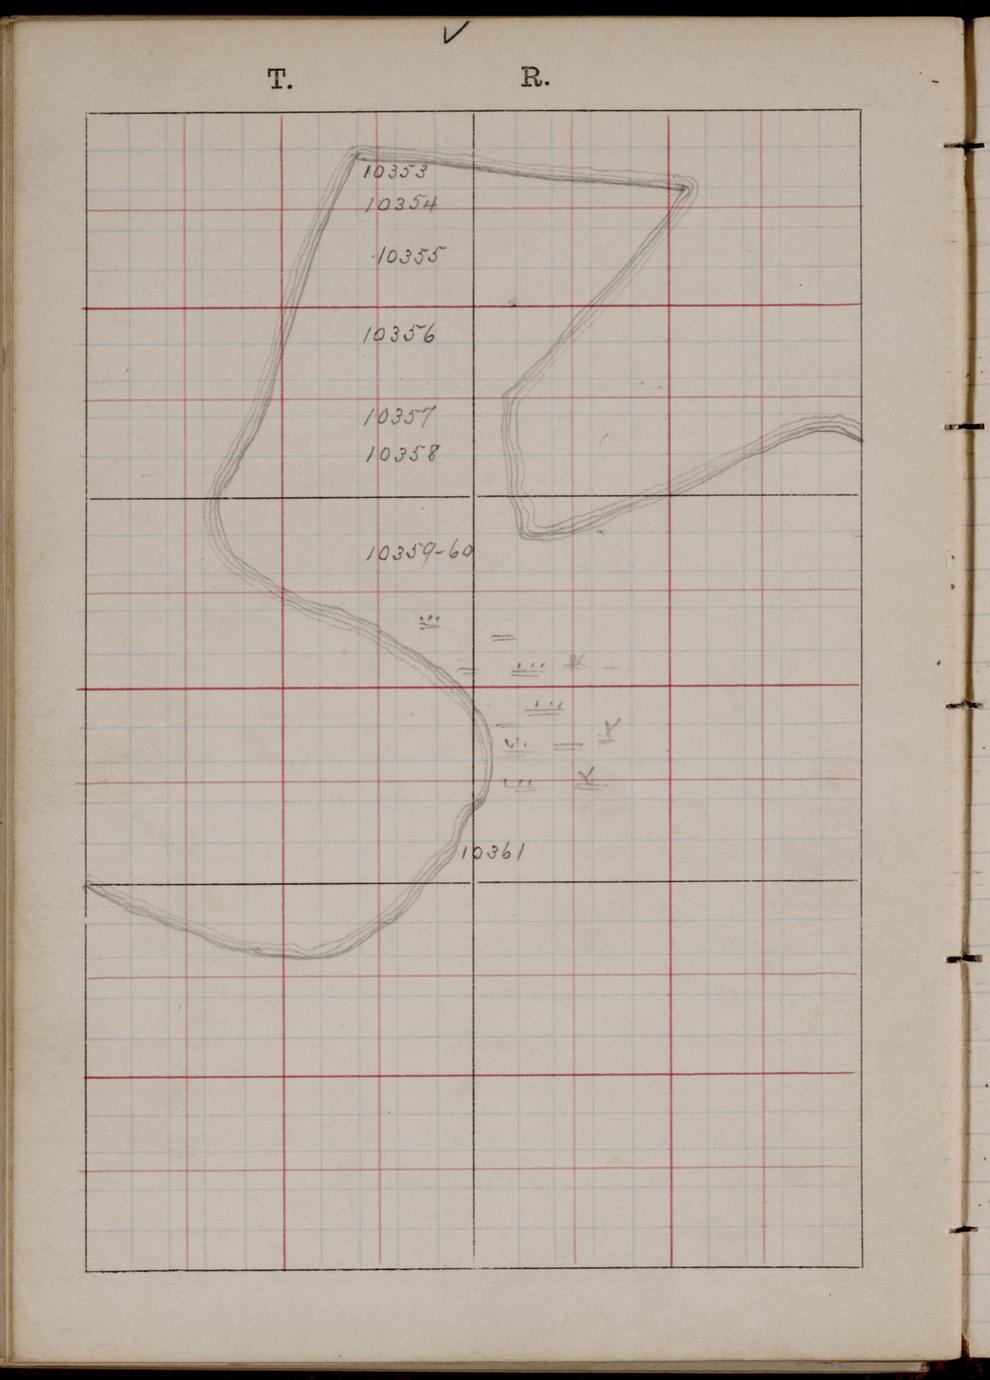 T. R.
10353
10354
10355
10356
10357
10358
10359-60
10361